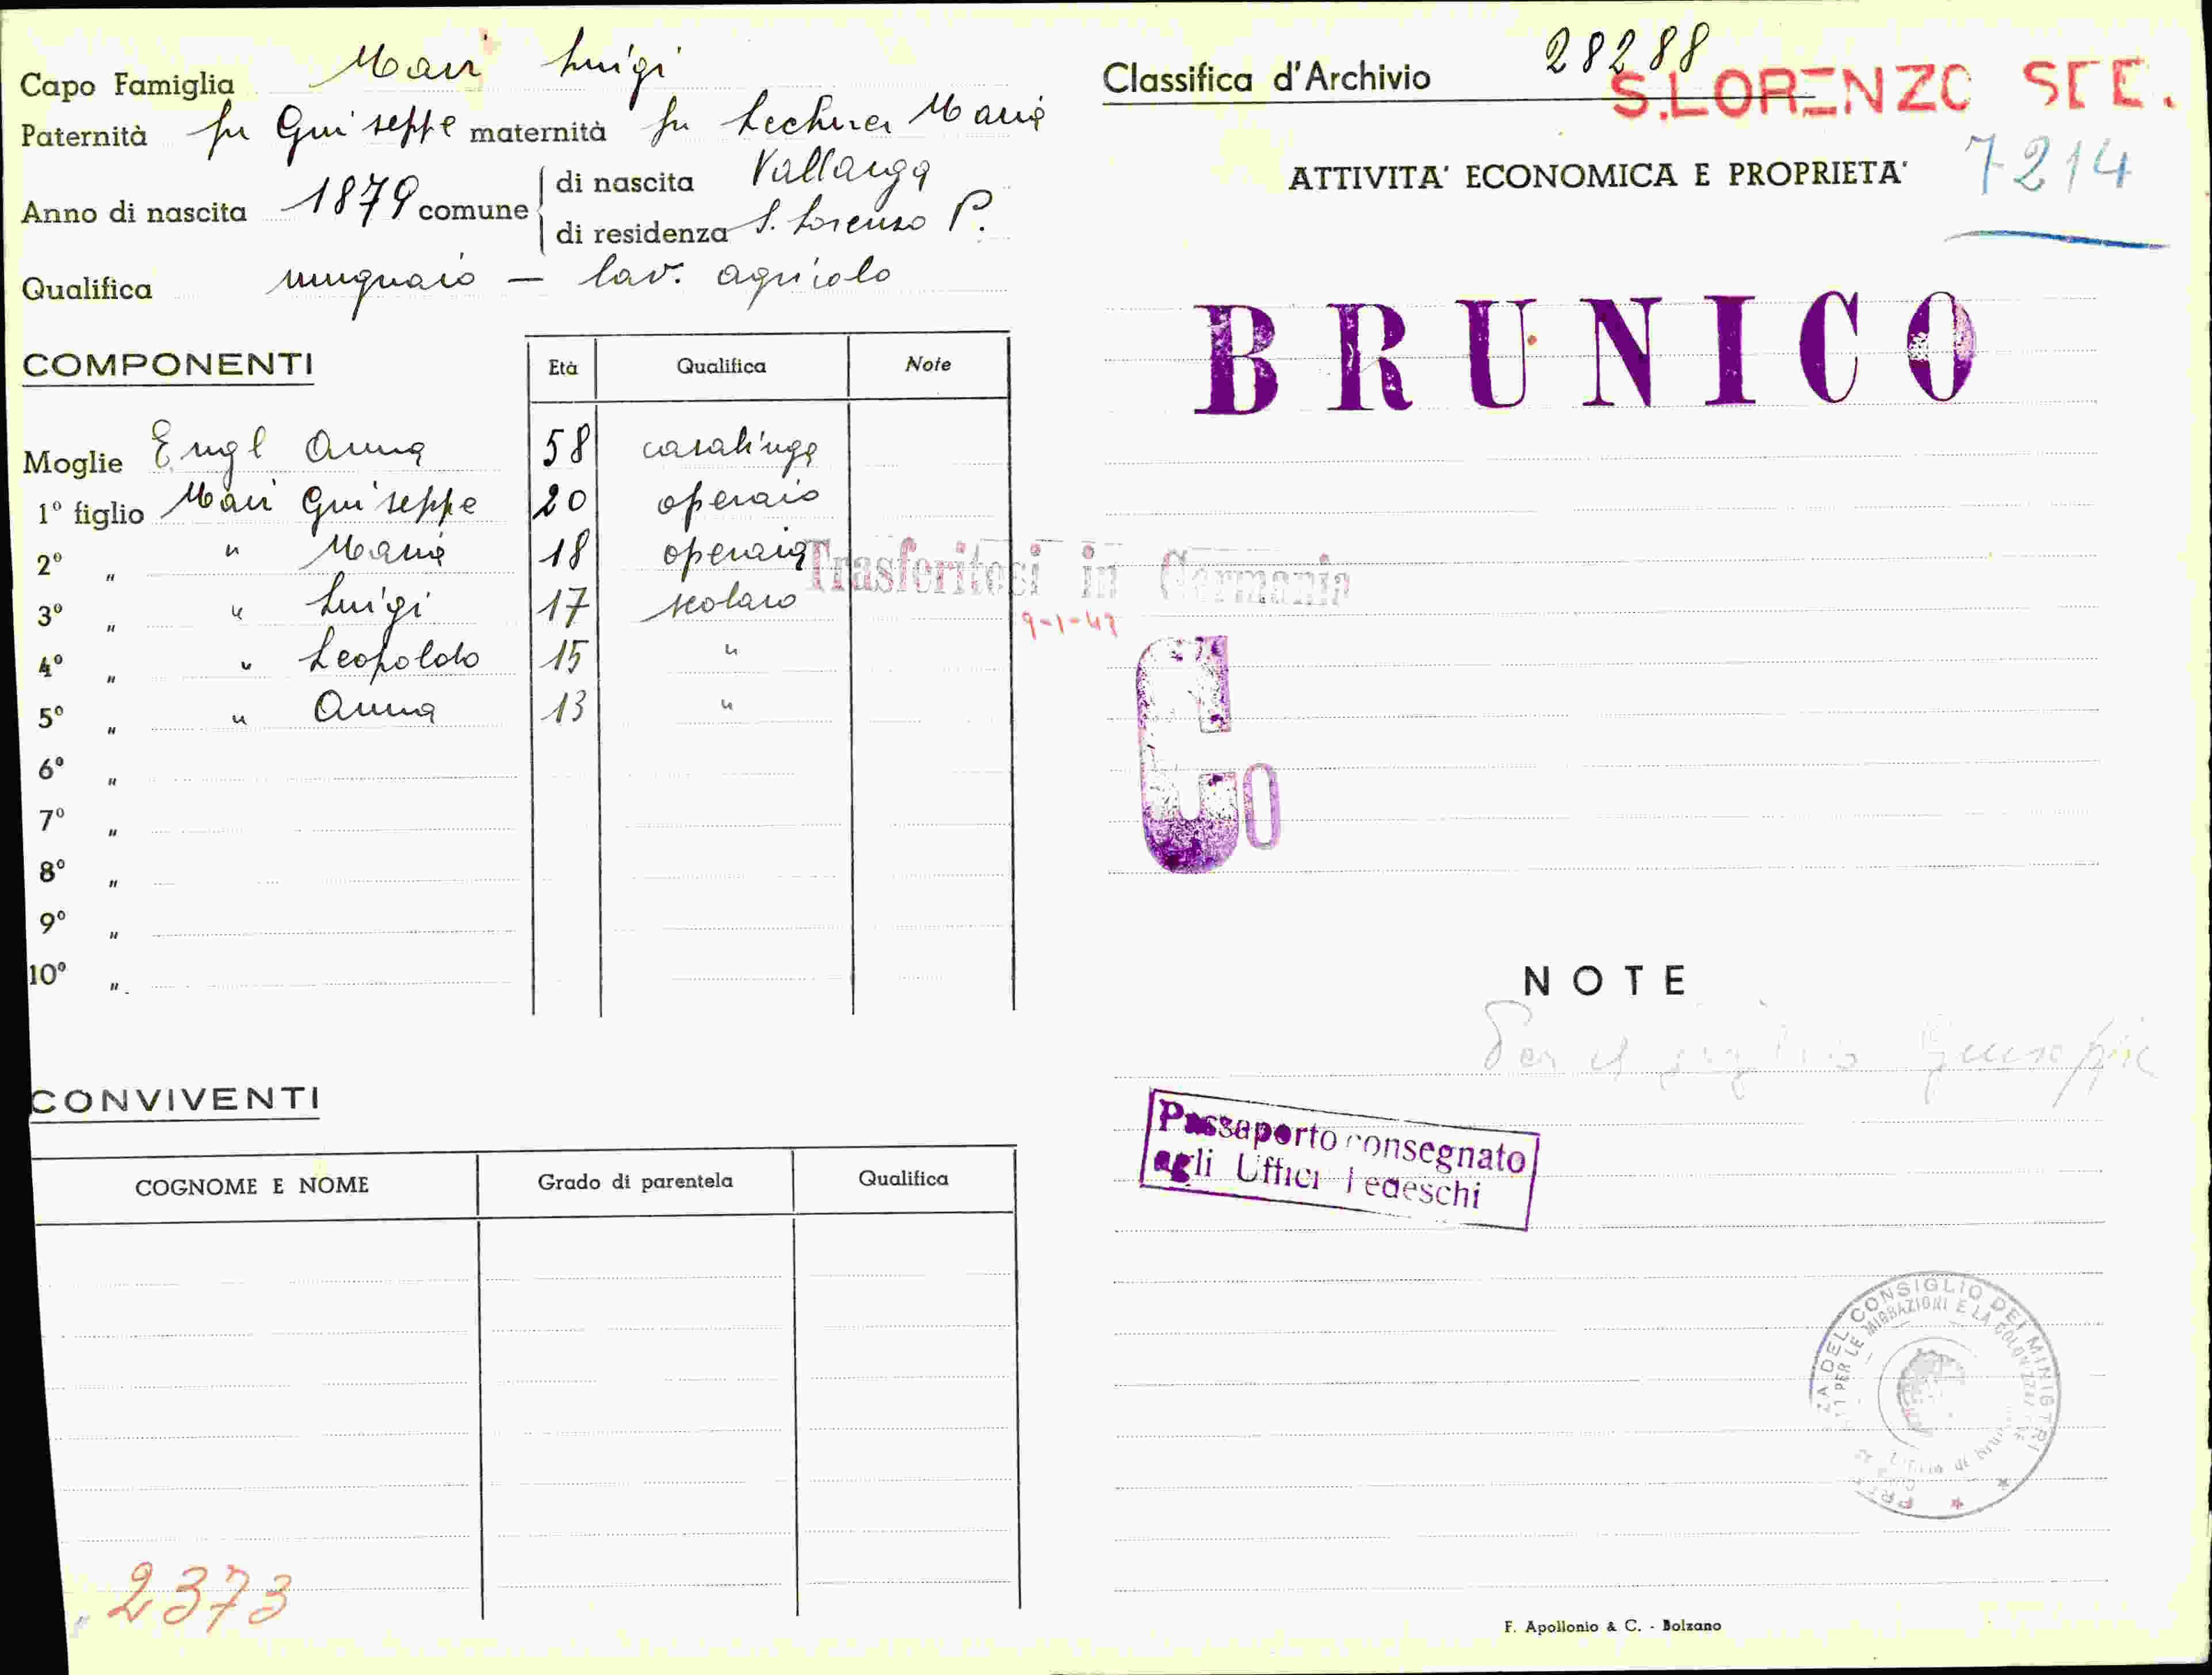 Capo Famiglia Mair Luigi
Paternità fu Giuseppe maternità fu Lechner Maria
Anno di nascita 1879 comune di nascita Vallarga
di residenza S. Lorenzo P.
Qualifica mugnaio — lav. agricolo
COMPONENTI Età Qualifica Note
Moglie Engl Anna 58 casalinga
1° figlio Mair Giuseppe 20 operaio
2° " " Maria 18 operaia
3° " " Luigi 17 scolaro
4° " " Leopoldo 15 "
5° " " Anna 13 "
6° "
7° "
8° "
9° "
10° "
CONVIVENTI
COGNOME E NOME Grado di parentela Qualifica
2373
Classifica d'Archivio 28288
S.LORENZO
7214
ATTIVITA' ECONOMICA E PROPRIETA'
BRUNICO
Trasferitosi in Germania
9-1-43
NOTE
Per il figlio Giuseppe
Passaporto consegnato
agli Uffici Tedeschi
CONSIGLIO DEI MINISTRI
PER LE MIGRAZIONI E LA
F. Apollonio & C. - Bolzano